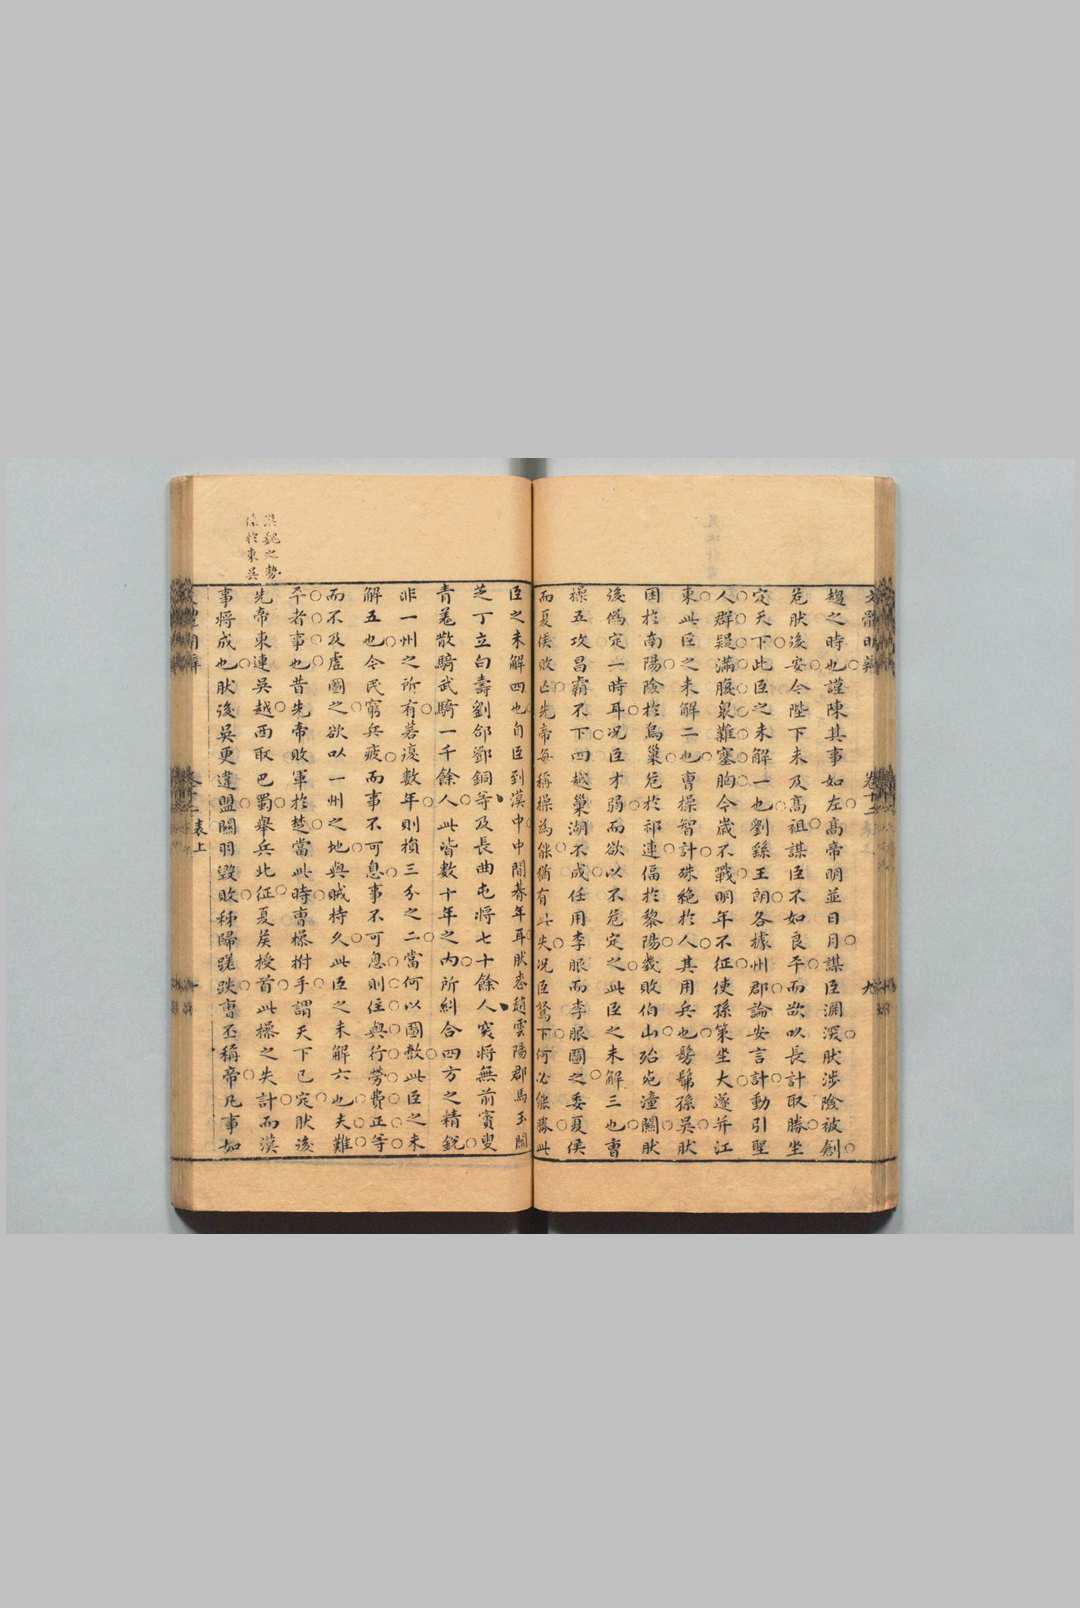 趨之時也謹陳其事如左高帝明並日月謀臣淵深肰涉險被創
危肰後安今陛下未及高祖謀臣不如良平而欲以長計取勝坐
定天下此臣之未解一也劉繇王朗各據州郡論安言計動引聖
人群疑滿腹衆難塞胸今歲不戰明年不征使孫策坐大遂并江
東此臣之未解二也曹操智計殊絶於人其用兵也髣髴孫吳肰
困於南陽險於烏巢危於祁連偪於黎陽幾敗伯山殆死潼關肰
後偽定一時耳况臣才弱而欲以不危定之此臣之未解三也曹
操五攻昌霸不下四越巢湖不成任用李服而李服圖之委夏侯
而夏侯敗亡先帝每稱操為能猶有此失况臣駑下何必能勝此
臣之未解四也自臣到漢中中間朞年耳肰喪趙雲陽郡馬玉閻
芝丁立白壽劉郃鄧銅等及長曲屯將七十餘人突將無前賨叟
青羌散騎武騎一千餘人此皆數十年之內所糾合四方之精銳
非一州之所有若復數年則損三分之二當何以圖敵此臣之未
解五也今民窮兵疲而事不可息事不可息則住與行勞費正等
而不及虛圖之欲以一州之地與賊持久此臣之未解六也夫難
平者事也昔先帝敗軍於楚當此時曹操拊手謂天下已定肰後
先帝東連吳越西取巴蜀舉兵北征夏矦授首此操之失計而漢
事將成也肰後吳更違盟關羽毀敗秭歸蹉跌曹丕稱帝凡事如
表上
九
卷十二